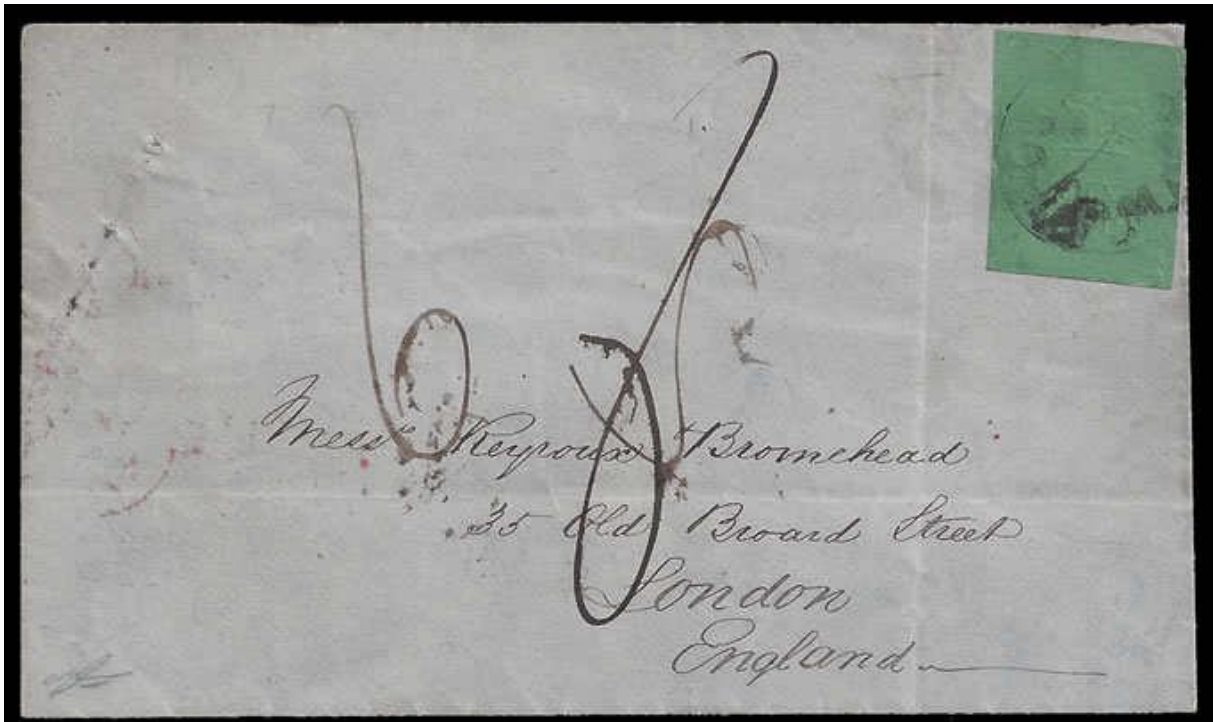 6
Mess^rs Keyroux & Bromehead
35 Old Broard Street
London
England